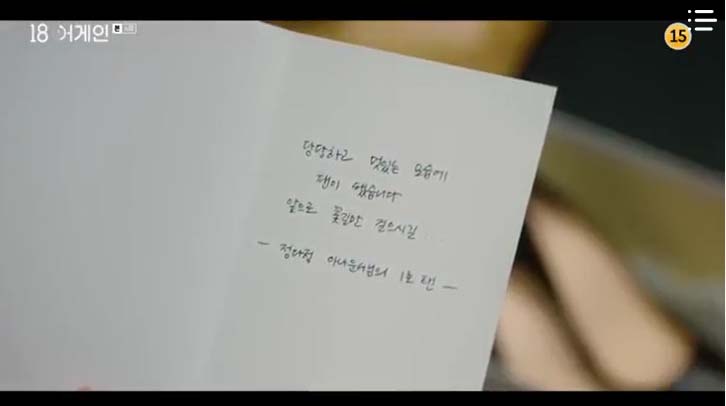 18 어게인
15
당당하고 멋있는 모습에
팬이 됐습니다
앞으로 꽃길만 걸으시길...
- 정다정 아나운서님의 1호 팬 -